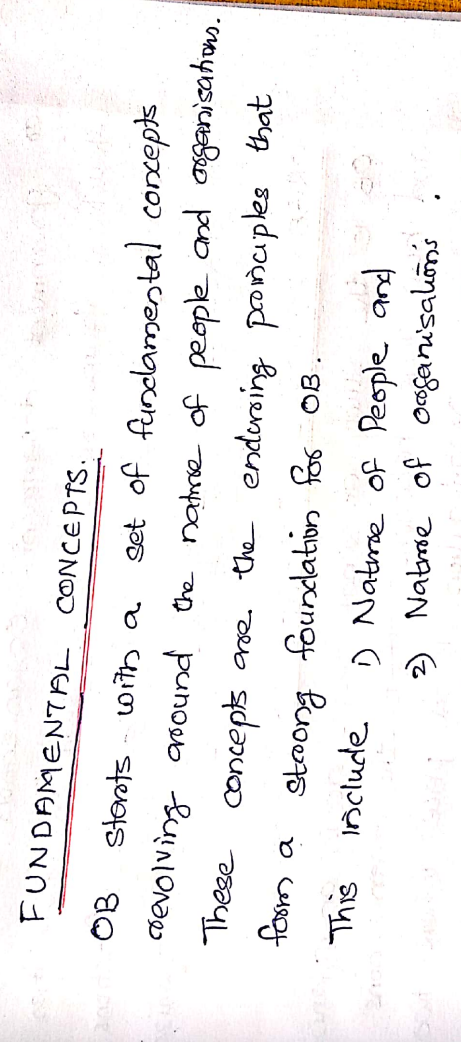 FUNDAMENTAL CONCEPTS.
OB starts with a set of fundamental concepts
revolving around the nature of people and organisations.
These concepts are the enduring principles that
form a strong foundation for OB.
This include 1) Nature of People and
2) Nature of organisations.